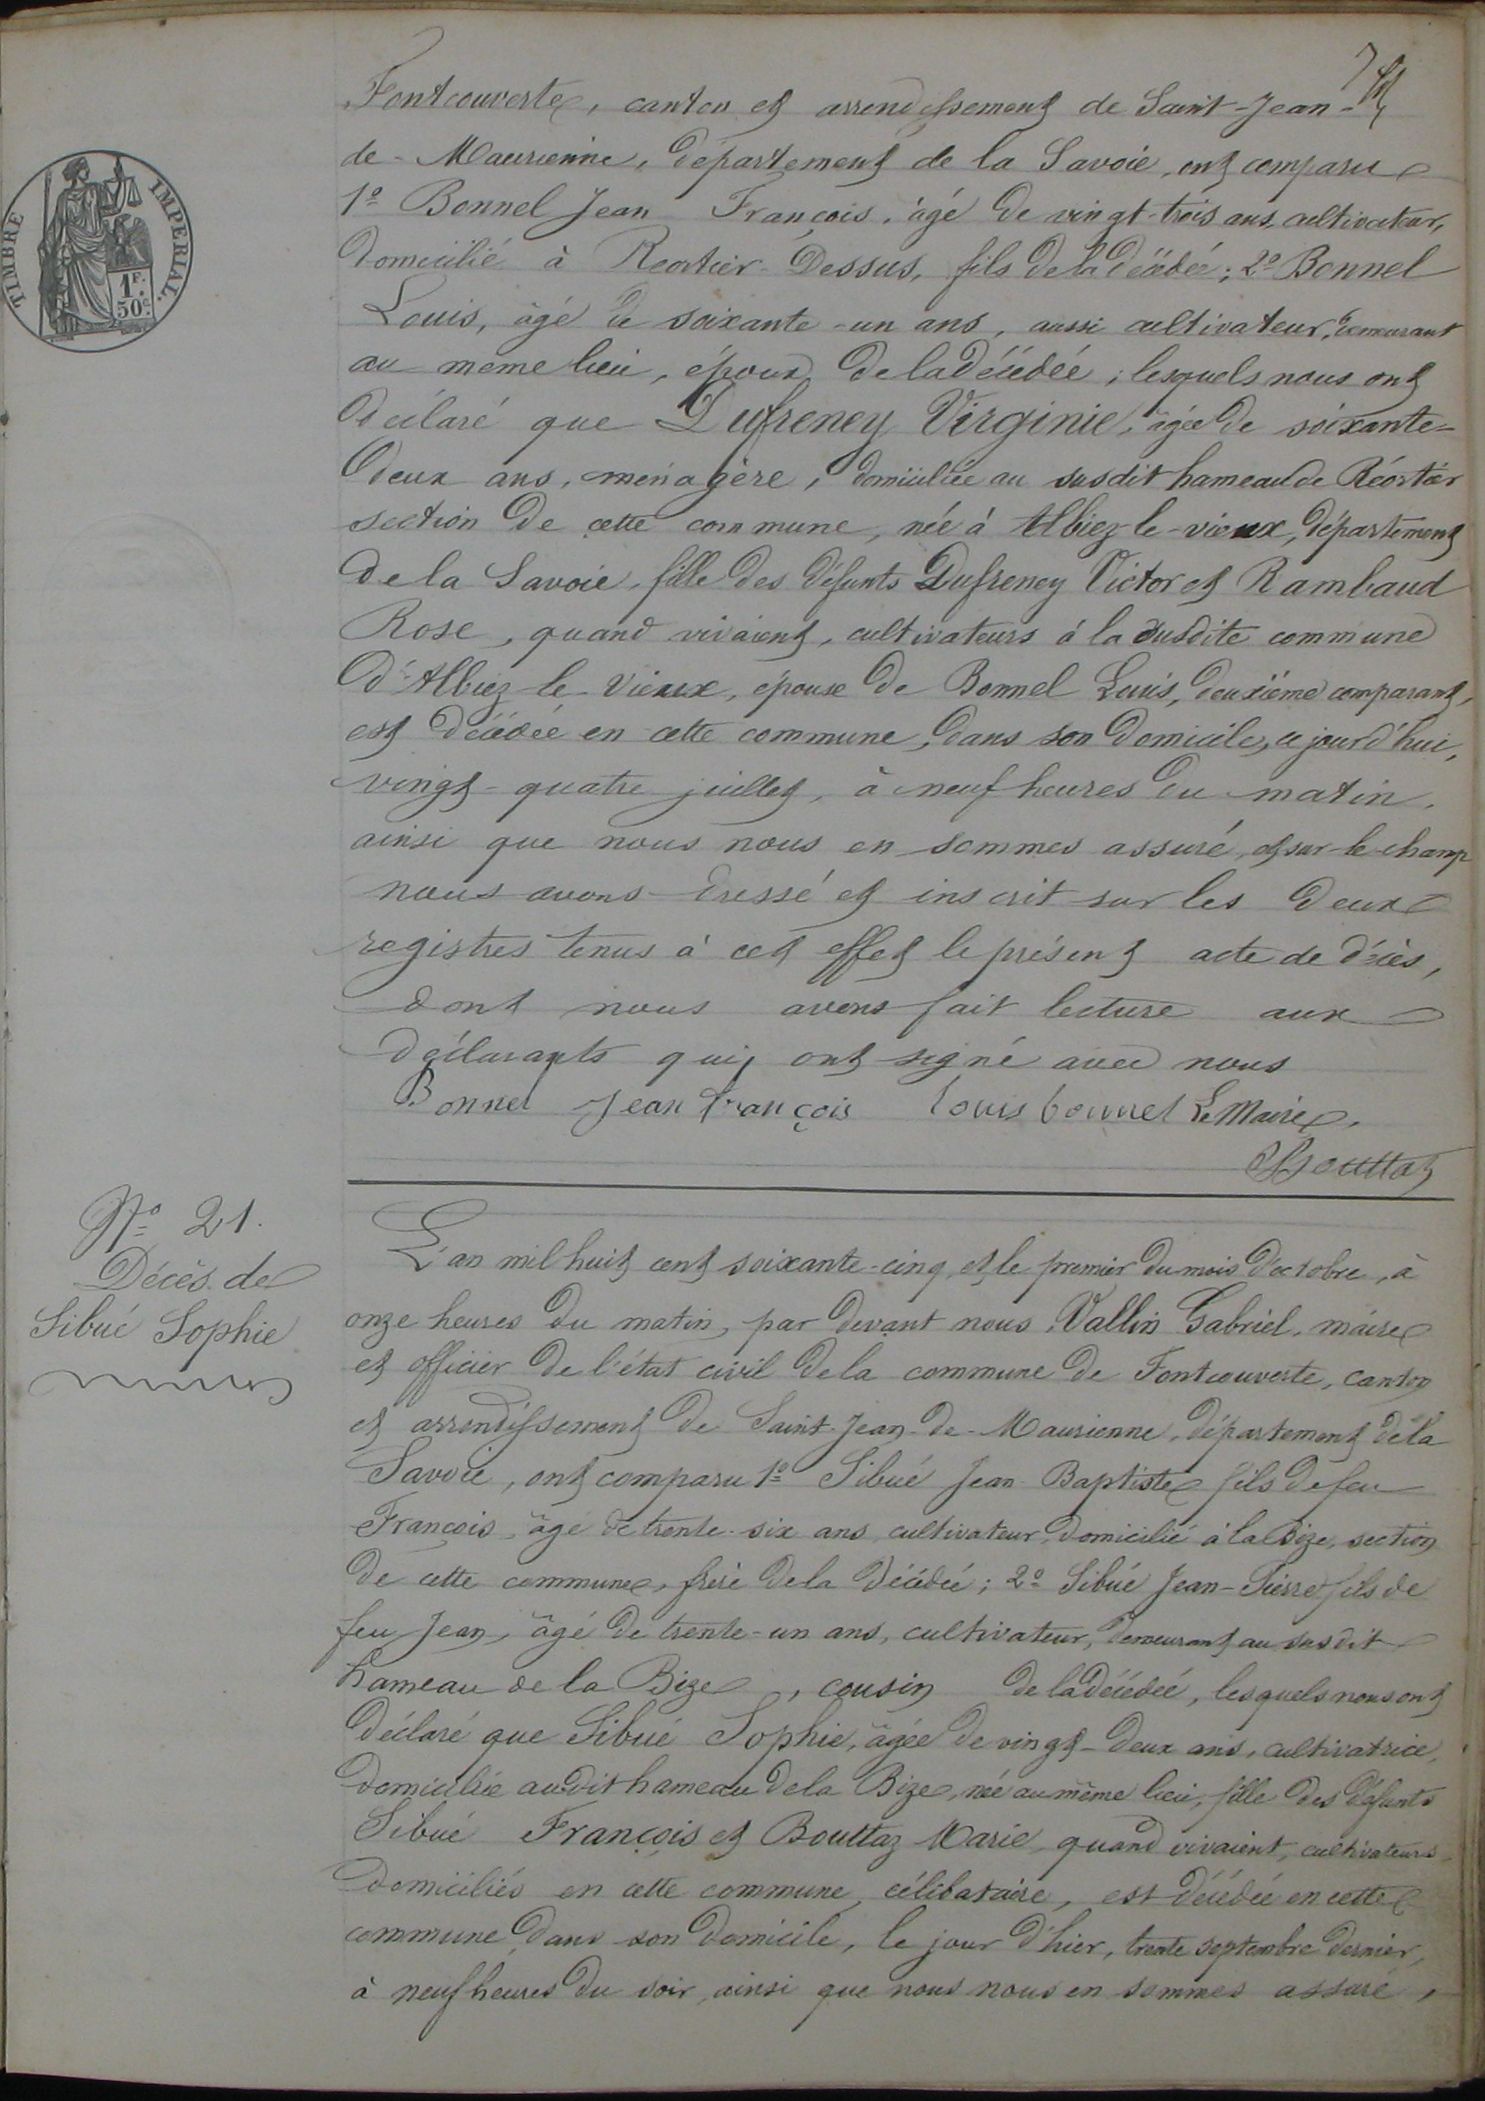 Fontcouverte, canton et arrondissement de Saint-Jean-
de-Maurienne, département de la Savoie, ont comparu
1º Bonnel Jean François, âgé de vingt-trois ans, cultivateur,
domicilié à Reortier-Dessus, fils de la décédée; 2º Bonnel
Louis, âgé de soixante-un ans, aussi cultivateur, demeurant
au même lieu, époux de la décédée; lesquels nous ont
déclaré que Dufreney Virginie, âgée de soixante-
deux ans, ménagère, domiciliée au susdit hameau de Réortier
section de cette commune, née à Albiez-le-vieux, département
de la Savoie, fille des défunts Dufreney Victor et Rambaud
Rose, quand vivaient, cultivateurs à la susdite commune
d'Albiez-le-Vieux, épouse de Bonnel Louis, deuxième comparant,
est décédée en cette commune, dans son domicile, ce jourd'hui,
vingt-quatre juillet, à neuf heures du matin,
ainsi que nous nous en sommes assuré, et sur-le-champ
nous avons dressé et inscrit sur les deux
registres tenus à cet effet le présent acte de décès,
dont nous avons fait lecture aux
déclarants qui ont signé avec nous
Bonnel Jean François Louis bonnel Le Maire,
Bouttaz
TIMBRE IMPERIAL
1F. 50c
Nº 21.
Décès de
Sibué Sophie
L'an mil huit cent soixante-cinq et le premier du mois d'octobre, à
onze heures du matin, par devant nous, Vallin Gabriel, maire
et officier de l'état civil de la commune de Fontcouverte, canton
et arrondissement de Saint-Jean-de-Maurienne, département de la
Savoie, ont comparu 1º Sibué Jean-Baptiste fils de feu
François, âgé de trente-six ans, cultivateur, domicilié à la Bize, section
de cette commune, frère de la décédée; 2º Sibué Jean-Pierre fils de
feu Jean, âgé de trente-un ans, cultivateur, demeurant au susdit
hameau de la Bize, cousin de la décédée, lesquels nous ont
déclaré que Sibué Sophie, âgée de vingt-deux ans, cultivatrice,
domiciliée audit hameau de la Bize, née au même lieu, fille des défunts
Sibué François et Bouttaz Marie, quand vivaient, cultivateurs
domiciliés en cette commune, célibataire, est décédée en cette
commune, dans son domicile, le jour d'hier, trente septembre dernier,
à neuf heures du soir, ainsi que nous nous en sommes assuré,